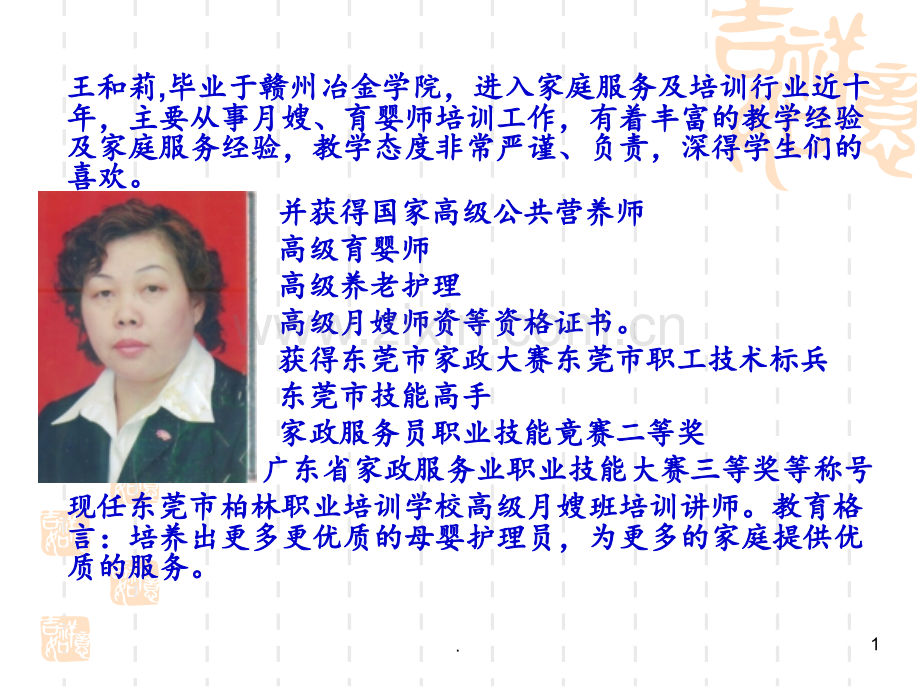 吉祥
如意
王和莉,毕业于赣州冶金学院，进入家庭服务及培训行业近十
年，主要从事月嫂、育婴师培训工作，有着丰富的教学经验
及家庭服务经验，教学态度非常严谨、负责，深得学生们的
喜欢。
并获得国家高级公共营养师
高级育婴师
高级养老护理
高级月嫂师资等资格证书。
www.zixin.com.cn
获得东莞市家政大赛东莞市职工技术标兵
东莞市技能高手
家政服务员职业技能竟赛二等奖
广东省家政服务业职业技能大赛三等奖等称号
现任东莞市柏林职业培训学校高级月嫂班培训讲师。教育格
言：培养出更多更优质的母婴护理员，为更多的家庭提供优
质的服务。
吉祥
如意
如意
吉祥
如意
.
1